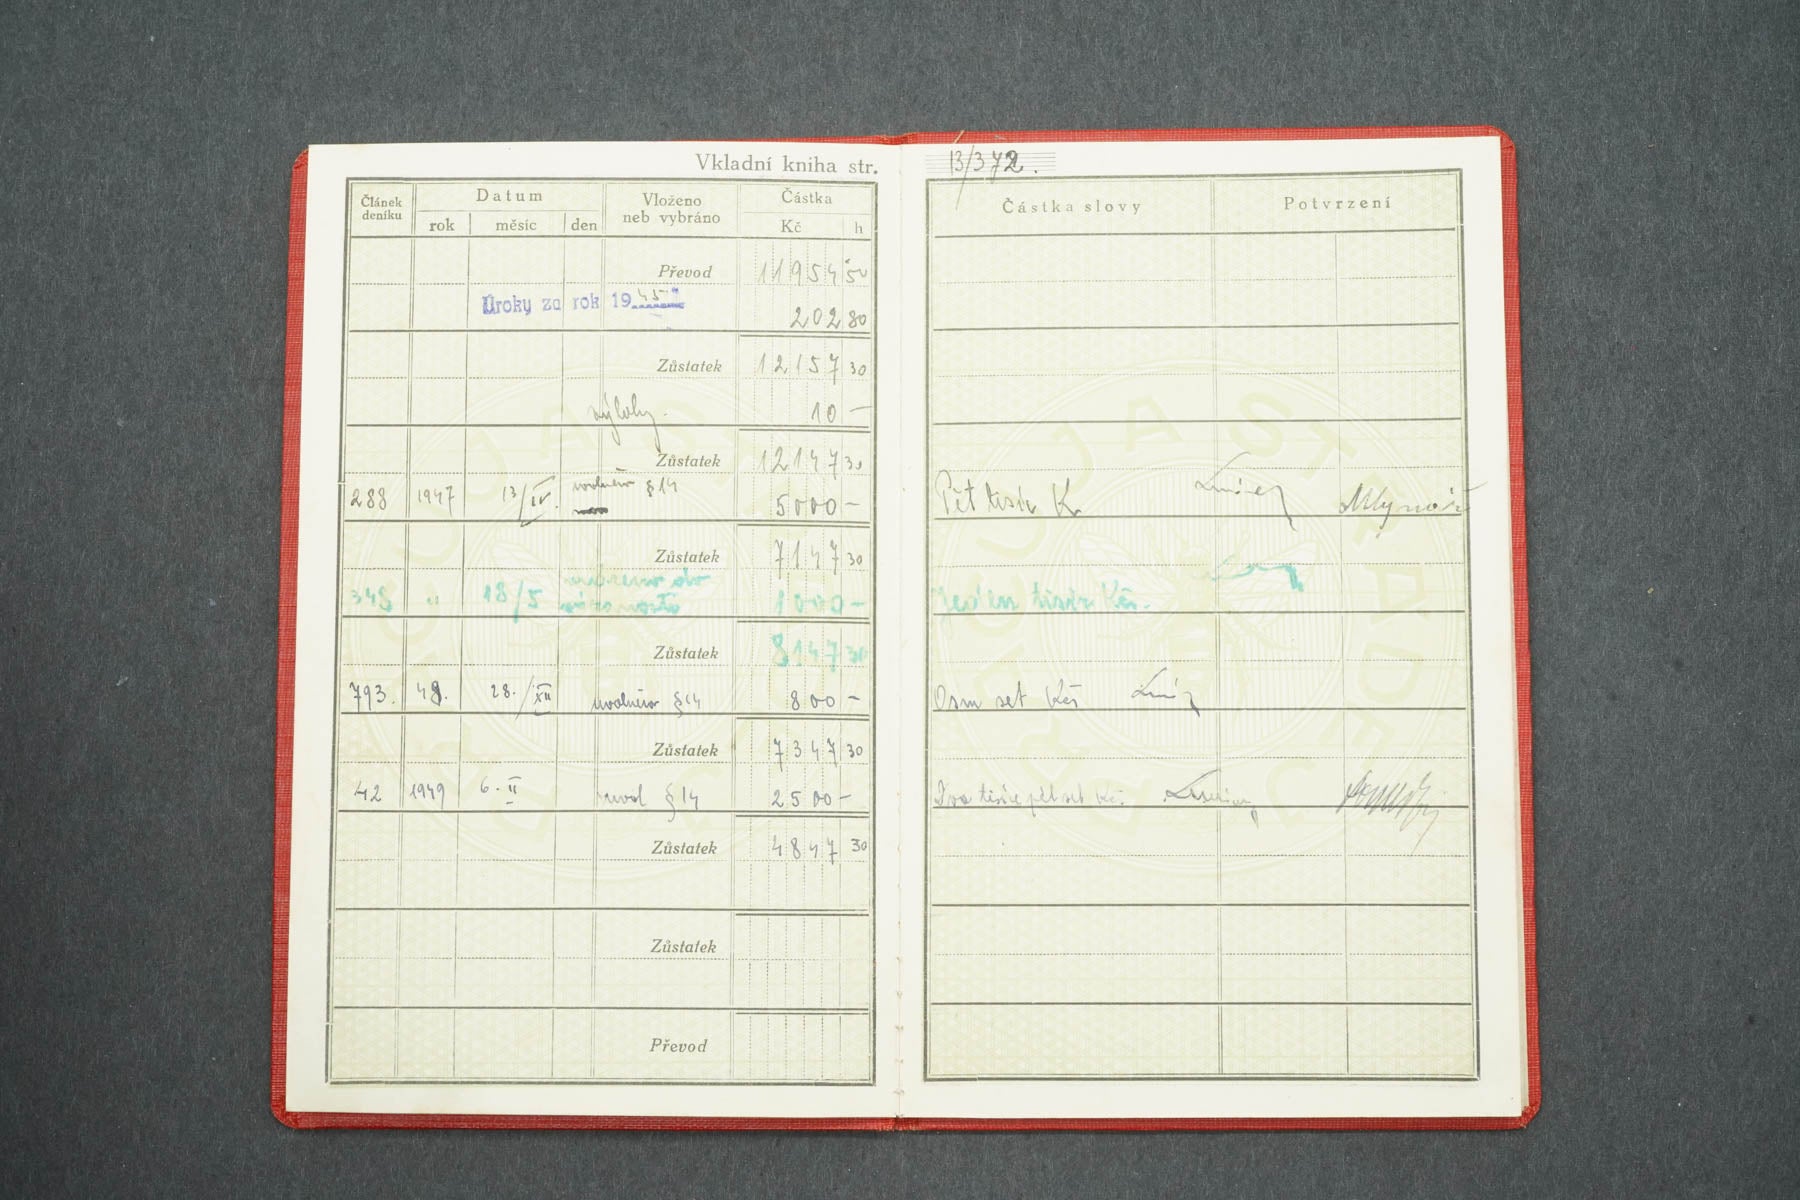 Vkladní kniha str. 13/372.
Článek deníku Datum Vloženo neb vybráno Částka
rok měsíc den Kč h
Částka slovy Potvrzení
Převod 11954 50
Úroky za rok 1945 202 80
Zůstatek 12157 30
výlohy. 10 –
Zůstatek 12147 30
288 1947 13/IV. uvolněno §14 5000 – Pět tisíc K Mlynář
Zůstatek 7147 30
348 " 18/5 1000 – Jeden tisíc Kčs.
Zůstatek 8147 30
793. 48. 28./XII uvolněno §14 800 – Osm set Kčs
Zůstatek 7347 30
42 1949 6. II §14 2500 – Dva tisíce pět set Kčs.
Zůstatek 4847 30
Zůstatek
Převod